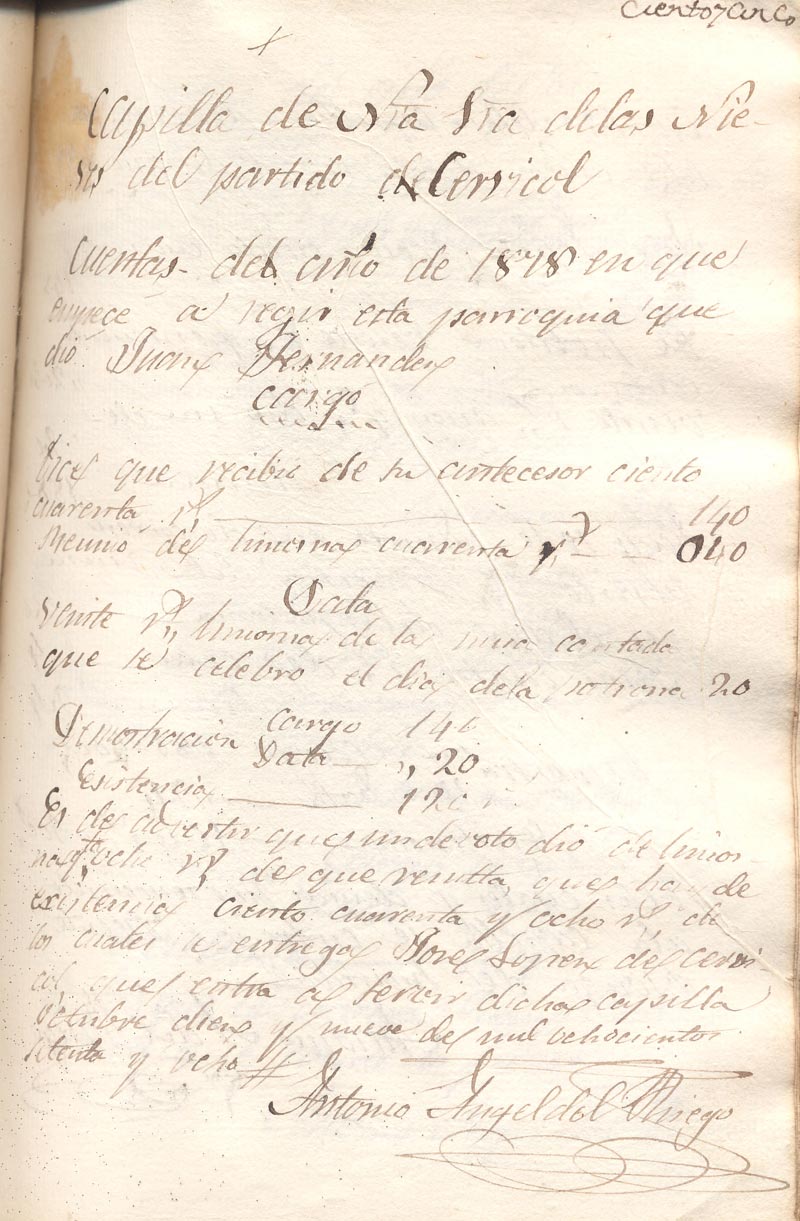 Ciento y Cinco
+
Capilla de Nra Sra de las Nie-
ves del partido de Cervicol
Cuentas del año de 1878 en que
empece a regir esta parroquia que
dió Juan Fernandez
Cargo
Dice que recibió de su antecesor ciento
cuarenta rs, 140
Reunió de limosnas cuarenta rs 040
Data
veinte rs, limosna de la misa cantada
que se celebró el dia de la patrona 20
Demostración Cargo 140
Data ,, 20
Existencia 120
Es de advertir que un devoto dió de limos-
na ocho rs, de que resulta, que hay de
existencia ciento cuarenta y ocho rs, de
los cuales se entrega Lopez de Cervi-
col, que entra a servir dicha capilla
octubre diez y nueve de mil ochocientos
setenta y ocho
Antonio Angel del Riego